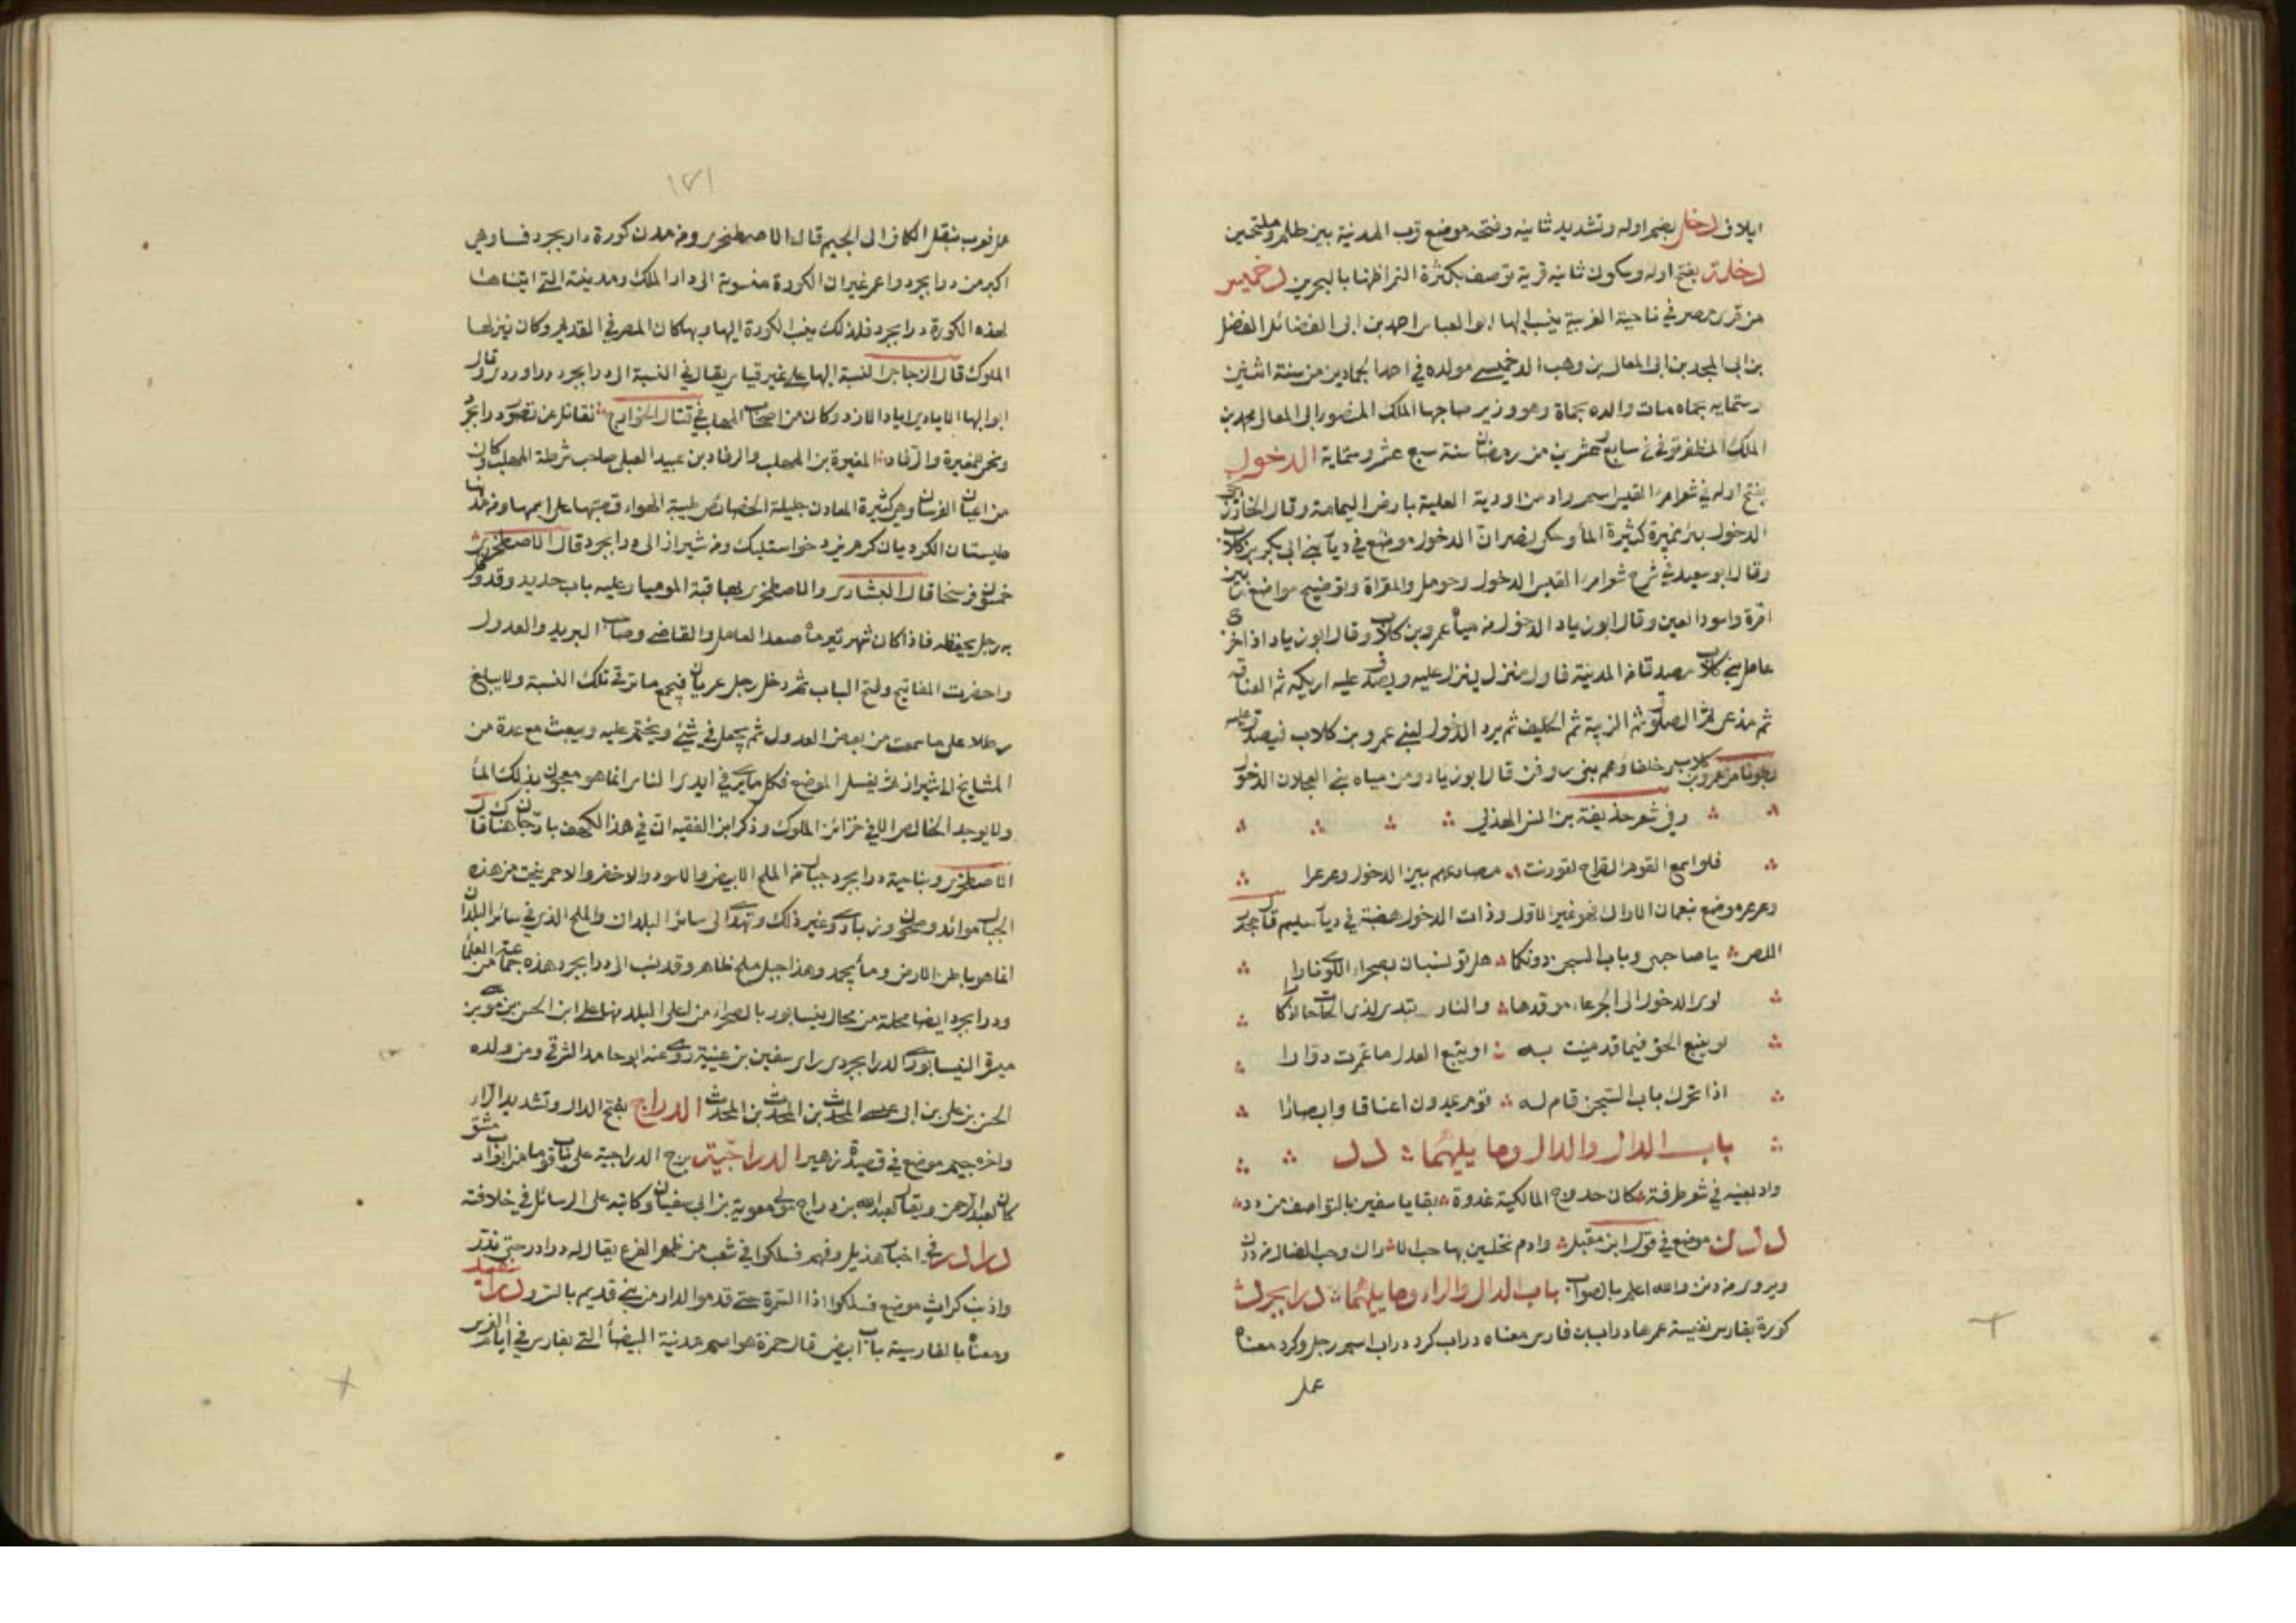 ايلاف دخل بضم اوله وتشديد ثانيه وفتحه موضع قرب المدينة بين ظلم وملحتين
دخلة بفتح اوله وسكون ثانيه قرية توصف بكثرة التمر اظنها بالبحرين دخميس
من قرى مصر في ناحية الغربية ينسب اليها ابو العباس احمد بن ابى الفضائل المفضل
بن ابى المجد بن ابى المعالى بن وهب الدخميسى مولده في احد الجمادين من سنة اثنين
وستمايه بحماه مات والده بحماة وهو وزير صاحبها الملك المنصور ابى المعالى محمد بن
الملك المظفر توفى في سابع عشرين من رمضان سنة سبع عشر وستماية الدخول
بفتح اوله في شعر امرء القيس اسم واد من اودية العلية بارض اليمامة وقال الخارزنجى
الدخول بئر نميرة كثيرة الماء وحكى نصر ان الدخول موضع في ديار بنى ابى بكر بن كلاب
وقال ابو سعيد في شرح شعر امرء القيس الدخول وحومل والمقراة وتوضيح مواضع ما بين
امرة واسود العين وقال ابو زياد الدخول من مياه عمرو بن كلاب وقال ابو زياد اذا خرج
عامل بنى كلاب مصدقا من المدينة فاول منزل ينزل عليه ويصدق عليه اريكه ثم العناقه
ثم مذعى ثم المصلوق ثم الرنية ثم الحليف ثم يرد الدخول لبنى عمرو بن كلاب فيصدق عليه
بطونا من عمرو بن كلاب وحلفاءهم بنى روفن قال ابو زياد ومن مياه بنى العجلان الدخول
وفى شعر حذيفة بن انس الهذلى
فلو اسمع القوم الصراخ لقورنت مصارعهم بين الدخول وعرعرا
وعرعر موضع بنعمان الاراك فهو غير الاول وذات الدخول هضبة في ديار سليم قال جحدر
اللص يا صاحبى وباب السجن دونكما هل تونسان بصحراء اللوى نارا
لوى الدخول الى الجرعاء موقدها والنار تبدى لذى الحاجات اذكارا
لو يتبع الحق فيما قد منيت به او يتبع العدل ما عمرت دوارا
اذا تحرك باب السجن قام له قوم يمدون اعناقا وابصارا
باب الدال والدال وما يليهما دد
واد بعينه في شعر طرفة كان حدوج المالكية غدوة بقايا سفين بالنواصف من دد
ددن موضع في قول ابن مقبل وادم تحلين بها حب الاراك وحب الضال من ددن
ويروى من دنن والله اعلم بالصواب باب الدال والراء وما يليهما درابجرد
كورة بفارس نفيسة عمرها دراب بن فارس معناه دراب كرد دراب اسم رجل وكرد معناه
عمل
١٢١
عمل فعرب بنقل الكاف الى الجيم قال الاصطخرى ومن مدن كورة دار بجرد فسا وهى
اكبر من درابجرد واعمر غير ان الكورة منسوبة الى دار الملك ومدينته التى ابتناها
لهذه الكورة درابجرد فلذلك ينسب الكورة اليها وبها كان المصر في القديم وكان ينزلها
الملوك قال الزجاجى النسبة اليها على غير قياس يقال في النسبة الى درابجرد دراوردى وقال
ابو البها الايادى اياد الازد وكان من اصحاب المهلب في قتال الخوارج نقاتل عن قصور درابجرد
ونحمى للمغيرة والرقاد المغيرة بن المهلب والرقاد بن عبيد العبلى صاحب شرطة المهلب وكان
من اعيان الفرسان وهى كثيرة المعادن جليلة الخصائص طيبة الهواء قصبتها على اسمها ومن مدنها
طبستان الكرديان كرم يزد خواستلبك ومن شيراز الى درابجرد قال الاصطخرى
خمسون فرسخا قال البشارى والاصطخرى بها قبة الموميا وعليه باب حديد وقد وكل
به رجل يحفظه فاذا كان شهر تير ماه صعد العامل والقاضى وصاحب البريد والعدول
واحضرت المفاتيح وفتح الباب ثم دخل رجل عريان فيجمع ما ترقى تلك السنة ولا يبلغ
رطلا على ما سمعت من بعض العدول ثم يجعل في شئ ويختم عليه ويبعث مع عدة من
المشايخ الى شيراز ثم يغسل الموضع فكل ما يرى في ايدى الناس انما هو معجون بذلك الماء
ولا يوجد الخالص الا في خزائن الملوك وذكر ابن الفقيه ان في هذا الكهف بارجان هناك قال
الاصطخرى وبناحية درابجرد جبال من الملح الابيض والاسود والاخضر والاحمر ينحت من هذه
الجبال موائد وصحون وزبادى وغير ذلك وتهدى الى سائر البلدان والملح الذى في سائر البلدان
انما هو باطن الارض وماء يجمد وهذا جبل ملح ظاهر وقد نسب الى درابجرد هذه جماعة من العلماء
ودرابجرد ايضا محلة من محال نيسابور بالصحراء من اعلى البلد منها على ابن الحسن بن موسى بن
ميسرة النيسابورى الدرابجردى راى سفين بن عيينة روى عنه ابو حامد الشرقى ومن ولده
الحسن بن على بن ابى عيسى المحدث بن المحدث بن المحدث الدراج بفتح الدال وتشديد الراء
واخره جيم موضع في قصيدة زهير الدراجية برج الدراجية على باب توما من ابواب دمشق
كان لعبد الرحمن ويقال لعبد الله بن دراج مولى معوية بن ابى سفيان وكاتبه على الرسائل في خلافته
درادر في اخبار هذيل وفهم فسلكوا في شعب من ظهر الفرع يقال له درادر حتى تذر
واذنب كراث موضع فسلكوا اذا السمرة حتى قدموا الدار من بنى قديم بالسرو
ومعناه بالفارسية باب ابيض قال حمزة هو اسم مدينة البيضاء التى بفارس في ايام الفرس